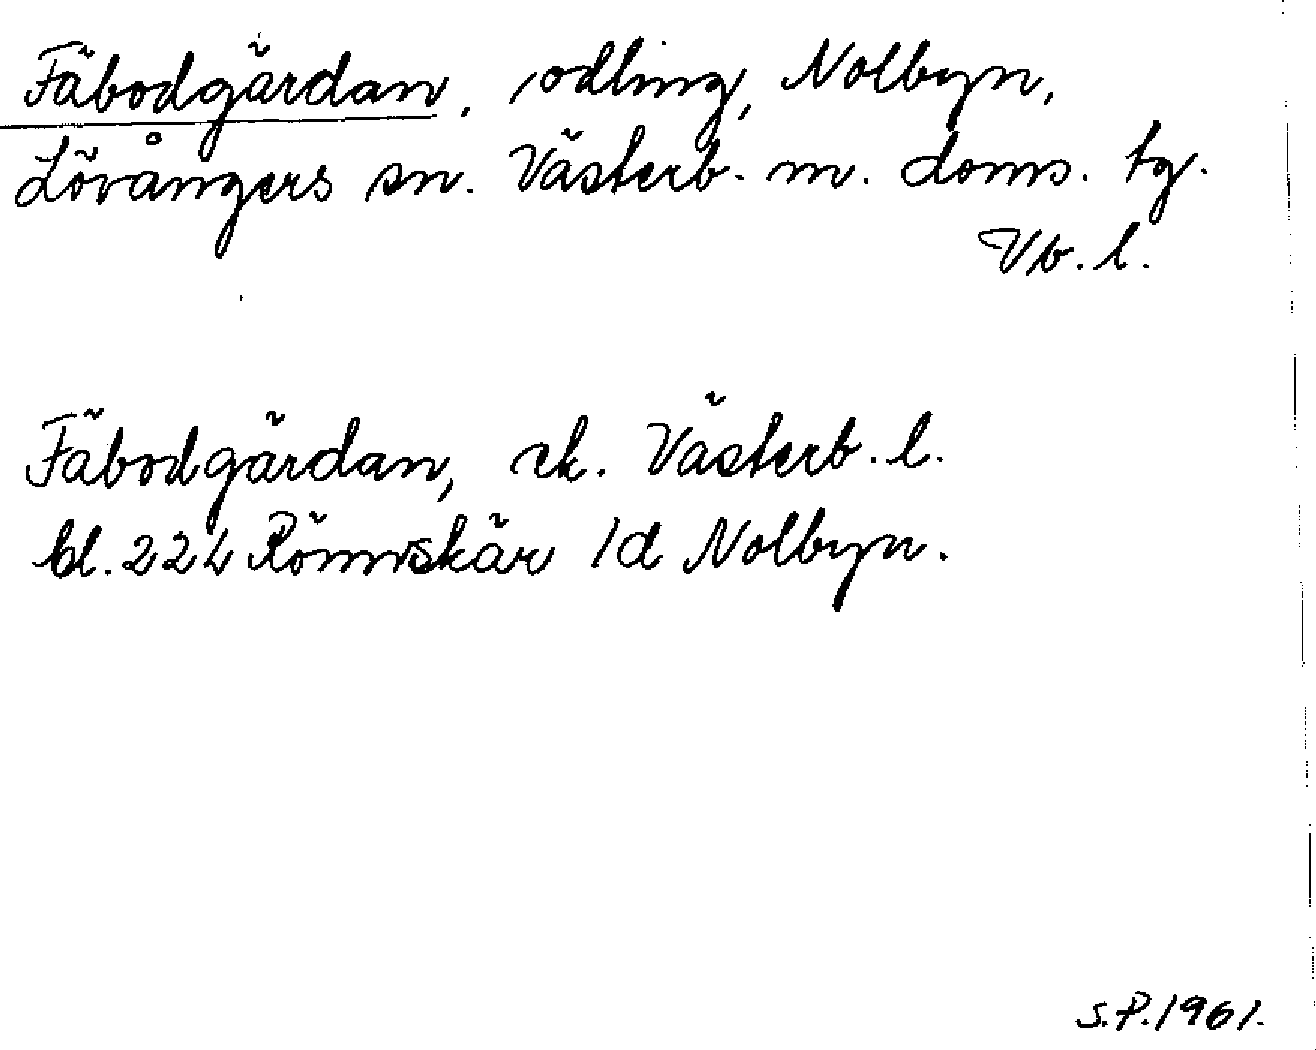 Fäbodgärdan, odling, Nolbyn,
Lövångers sn. Västerb. m. doms. tg.
Vb. l.
Fäbodgärdan, ek. Västerb. l.
bl. 224 Römskär 1d Nolbyn.
S.P. 1961.